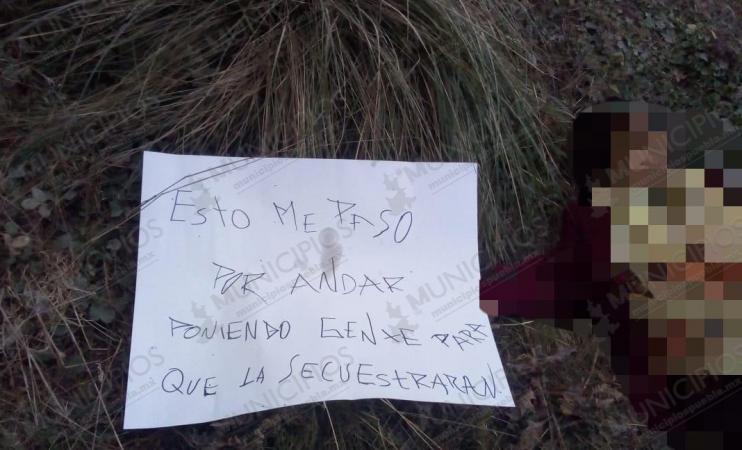 ESTO ME PASO
POR ANDAR
PONIENDO GENTE PARA
QUE LA SECUESTRARAN.
MUNICIPIOS
municipiospuebla.mx